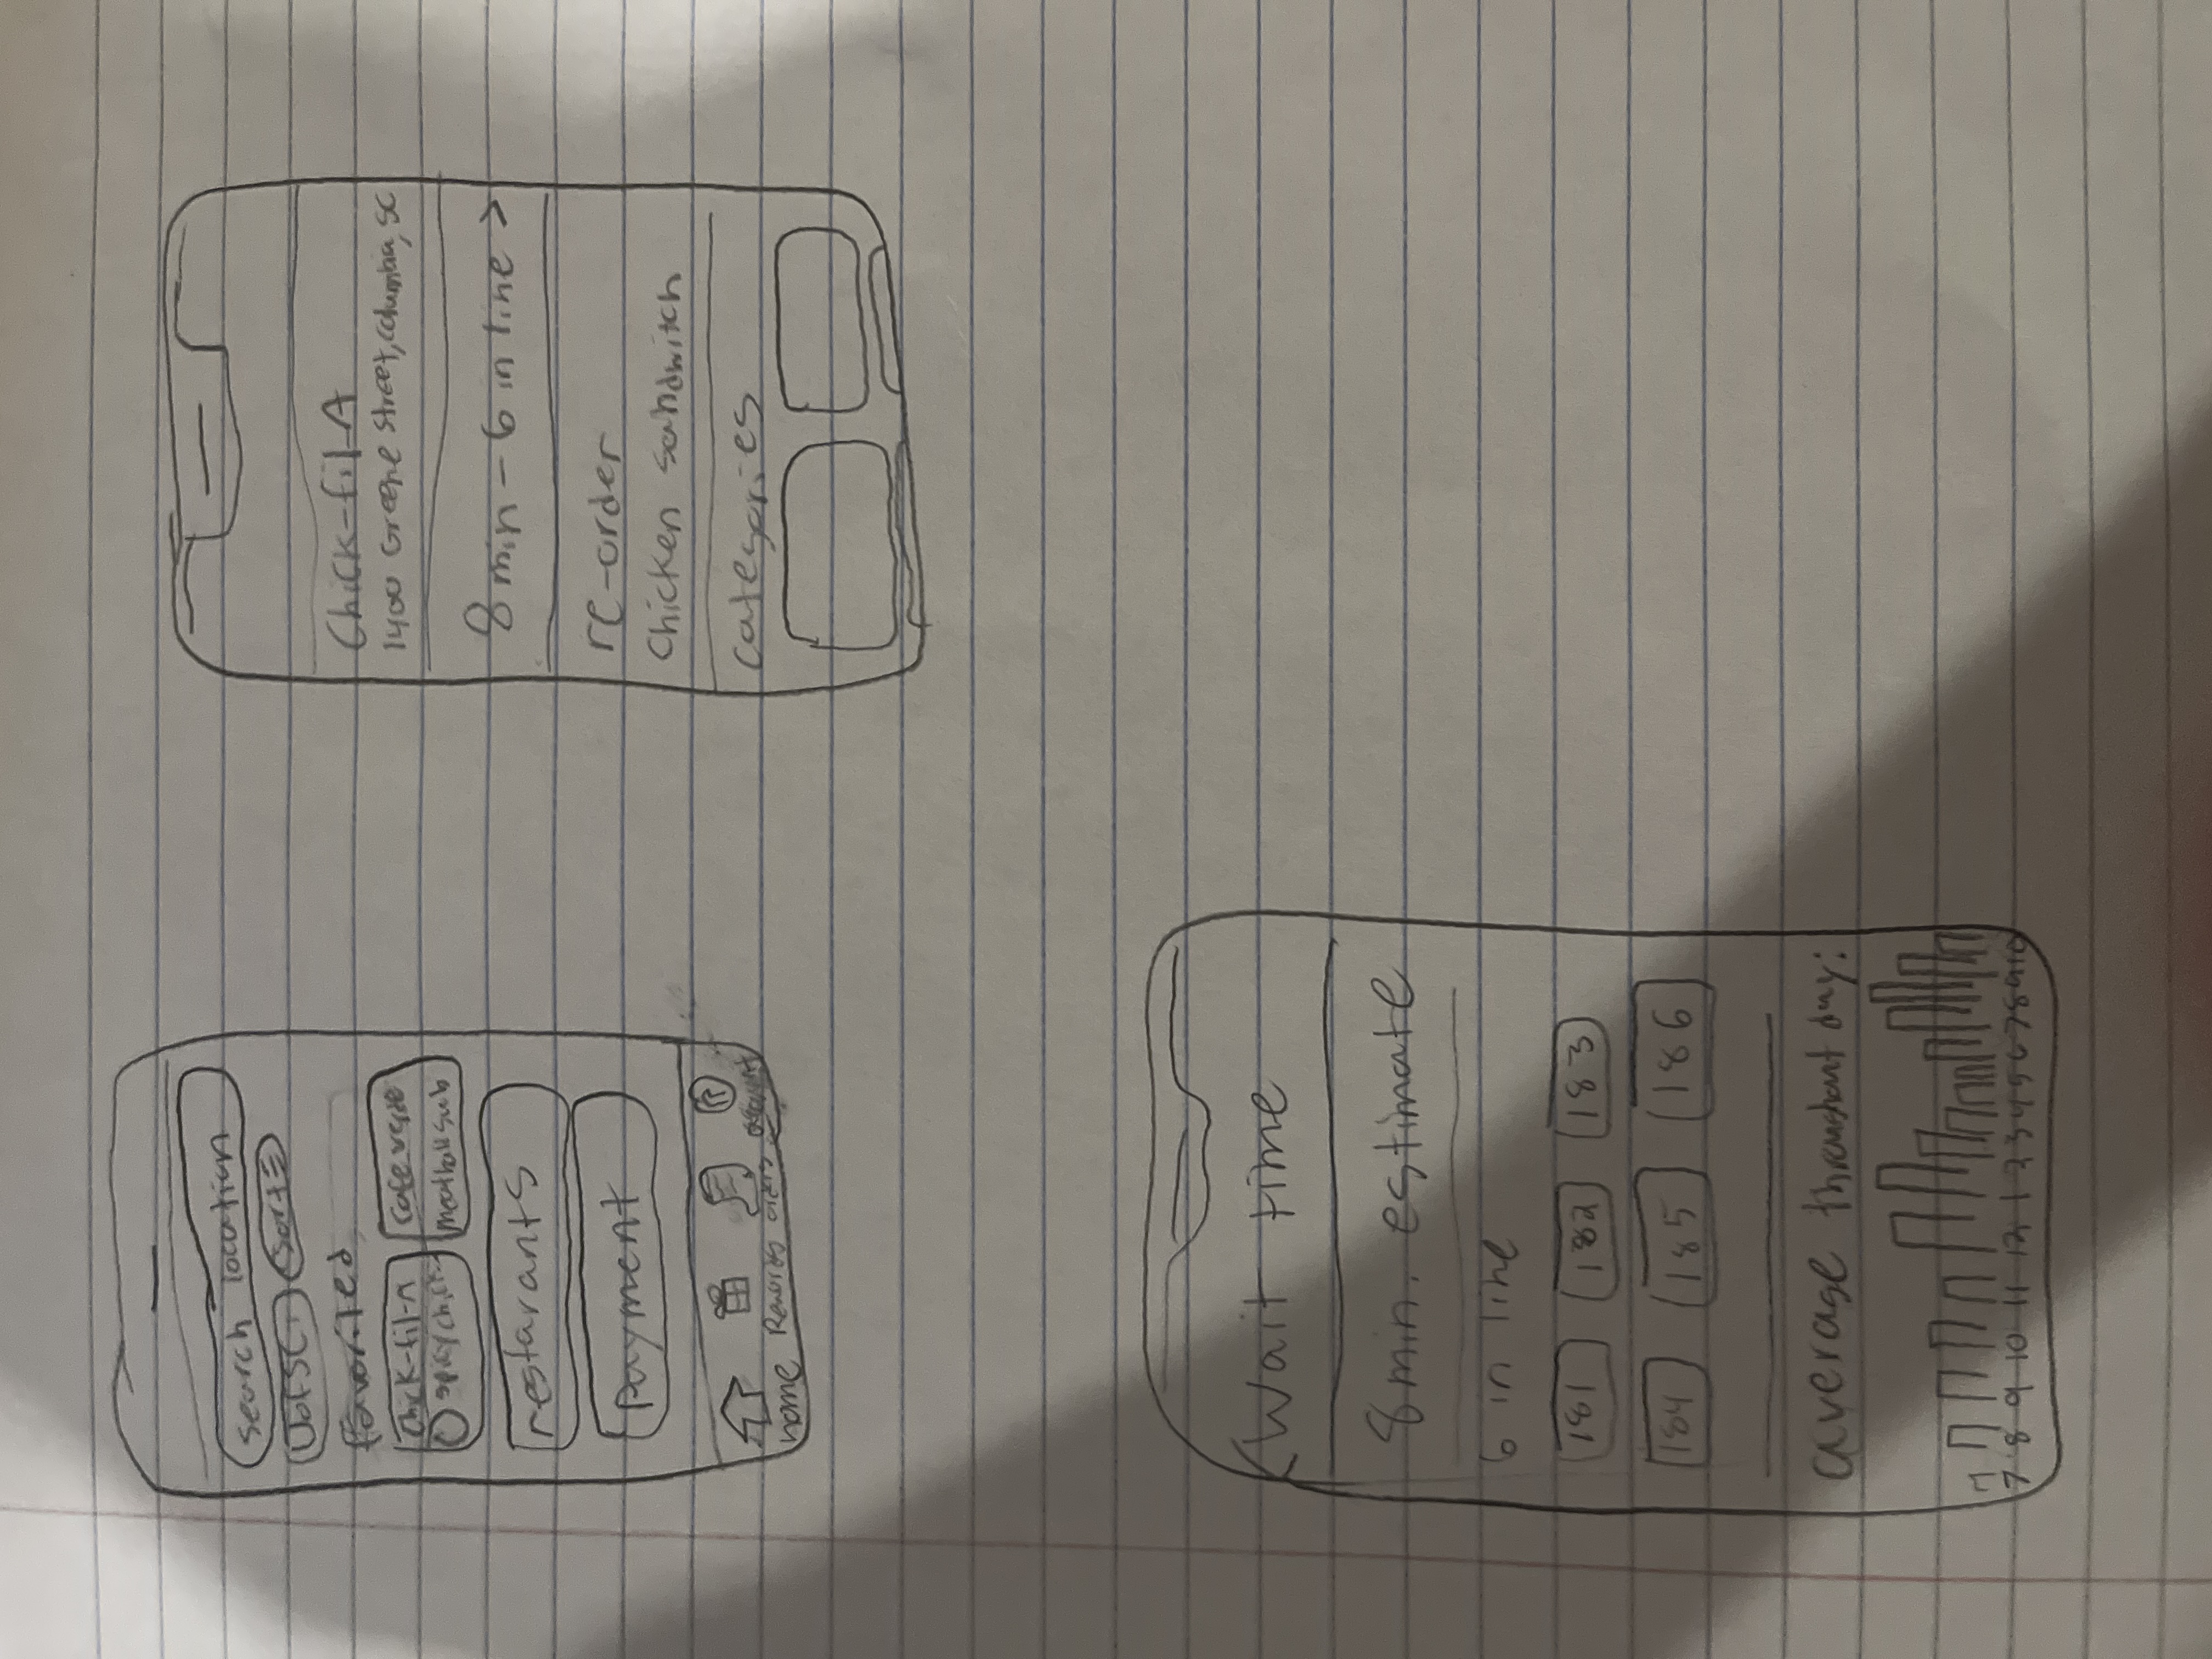 search location
UofSC
Sort
favorited
Chick-fil-A
cafe verde
spicy chick
meatball sub
restarants
Payment
home
Rewards
orders
account
Chick-fil-A
1400 Greene Street, columbia, SC
8 min - 6 in line >
re-order
Chicken sandwitch
categories
< Wait time
8 min. estimate
6 in line
181 182 183
184 185 186
average throughout day:
7 8 9 10 11 12 1 2 3 4 5 6 7 8 9 10